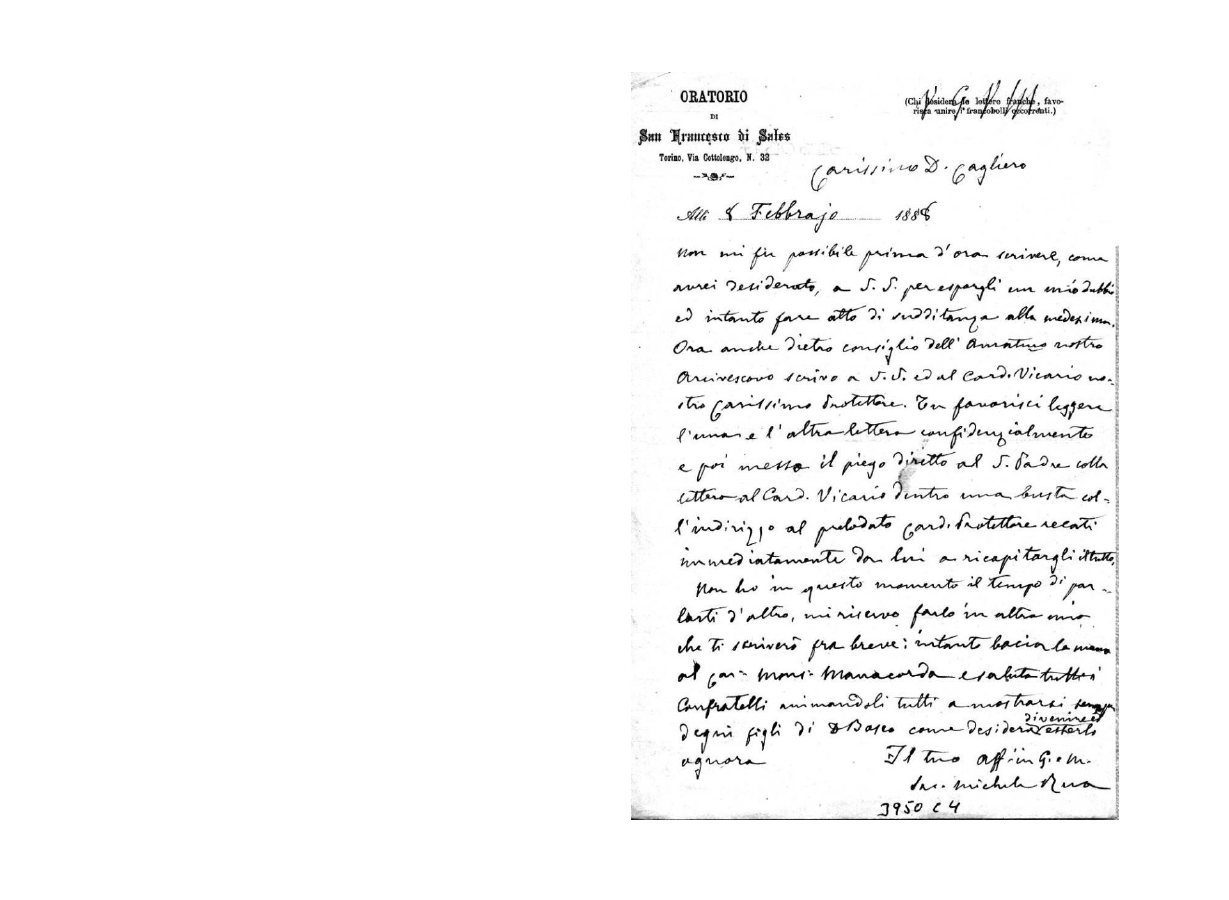 ORATORIO
DI
San Francesco di Sales
Torino, Via Cottolengo, N. 32
(Chi desidera le lettere franche, favo-
risca unire i francobolli occorrenti.)
V. G. M.
Carissimo D. Cagliero
Alli 8 Febbrajo 1888
Non mi fu possibile prima d'ora scrivere, come
avrei desiderato, a S. S. per esporgli un mio dubbio
ed intanto fare atto di sudditanza alla medesima.
Ora anche dietro consiglio dell' Amatmo nostro
Arcivescovo scrivo a S. S. ed al Card. Vicario no-
stro Carissimo Protettore. Tu favorisci leggere
l'una e l'altra lettera confidenzialmente
e poi messo il piego diretto al S. Padre colla
lettera al Card. Vicario dentro una busta col-
l'indirizzo al prelodato Card. Protettore recati
immediatamente da lui a ricapitargli il tutto.
Non ho in questo momento il tempo di par-
larti d'altro, mi riservo farlo in altra mia
che ti scriverò fra breve: intanto bacia la mano
al car- Mons- Manacorda e saluta tutti i
Confratelli animandoli tutti a mostrarsi sempre
degni figli di D Bosco come desidera divenire ed esserlo
ognora
Il tuo aff. in G. e M.
Sac. Michele Rua
3950 C 4